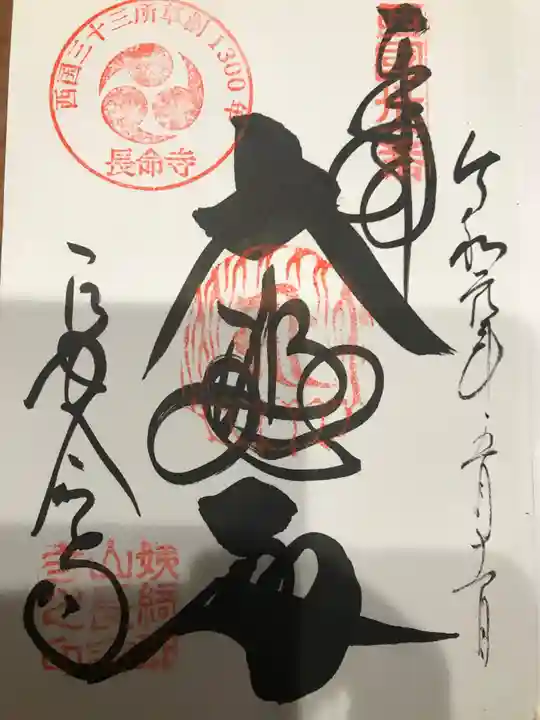 西国三十三所草創1300年
長命寺
奉拝
令和元年五月十一日
大悲殿
長命寺
姨綺耶山長命寺之印